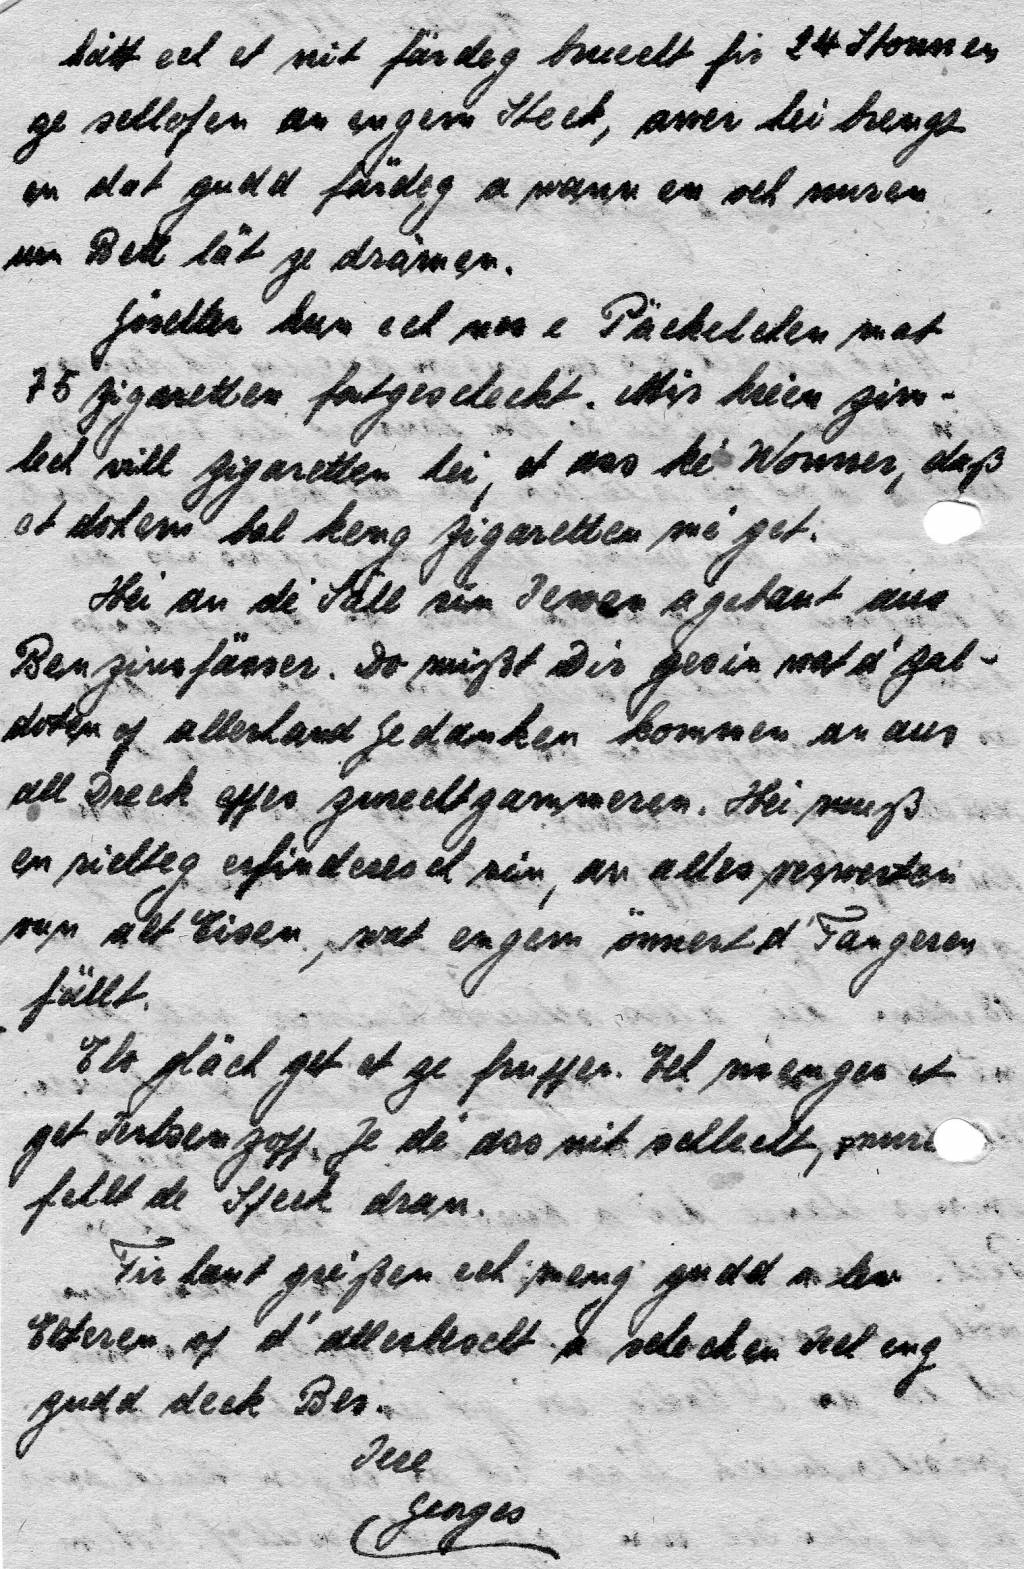 hätt ech et nit färdeg bruecht fir 24 Stonnen
ze schlofen an engem Steck, awer hei brengt
en dat gudd färdeg a wann en och nuren
um Bett lät ze drämen.
Göschter hun ech nos e Päckelchen mat
75 Zigaretten fortgescheckt. Mir kréien zim-
lech vill Zigaretten hei, et ass ké Wonner, daß
et dohem bal keng Zigaretten mé get.
Hei an de Säll sin Iewen agebaut aus
Benzinsfässer. Do mißt Dir gesin wat d'Zal-
doten of allerhand Gedanken kommen an aus
all Dreck eppes zurechtzammeren. Hei muß
en richteg erfinderesch sin, an alles verwerten
vun alt Eisen, wat engem önnert d'Fangeren
fällt.
Elo gläch get et ze fruppen. Ech mengen et
get Ierbsenzopp. Jo dé ass nit schlecht, nure
feelt de Speck dran.
Fir haut gréißen ech meng gudd a lev
Elteren of d'allerbescht a schecken Iech eng
gudd deck Bes.
Iere
Georges